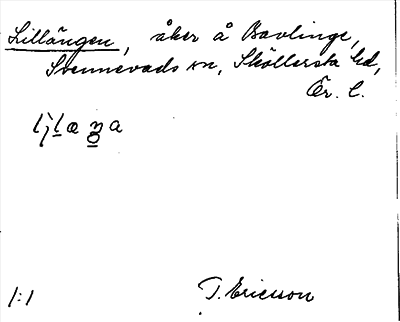 Lillängen, åker å Bavlinge,
Svennevads sn, Sköllersta hd,
Ör. l.
1:1
T. Ericsson